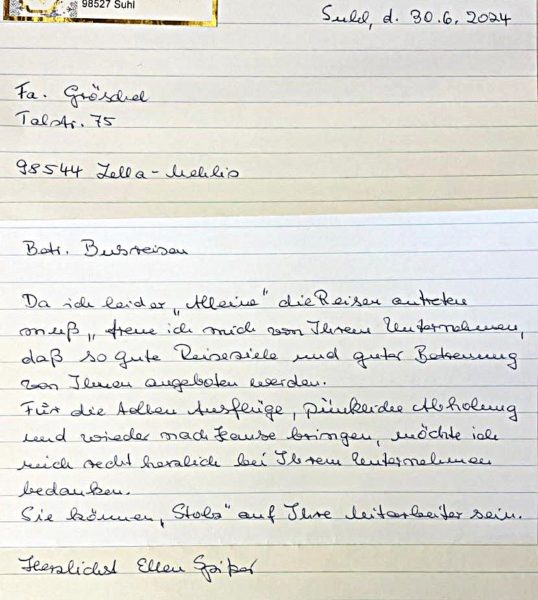 98527 Suhl
Suhl, d. 30.6.2024
Fa. Gröschel
Talstr. 75
98544 Zella-Mehlis
Betr. Busreisen
Da ich leider „Alleine“ die Reisen antreten
muß„ freue ich mich von Ihrem Unternehmen,
daß so gute Reiseziele und guter Betreuung
von Ihnen angeboten werden.
Für die tollen Ausflüge, pünktliche Abholung
und wieder nach Hause bringen, möchte ich
mich recht herzlich bei Ihrem Unternehmen
bedanken.
Sie können „Stolz“ auf Ihre Mitarbeiter sein.
Herzlichst Ellen